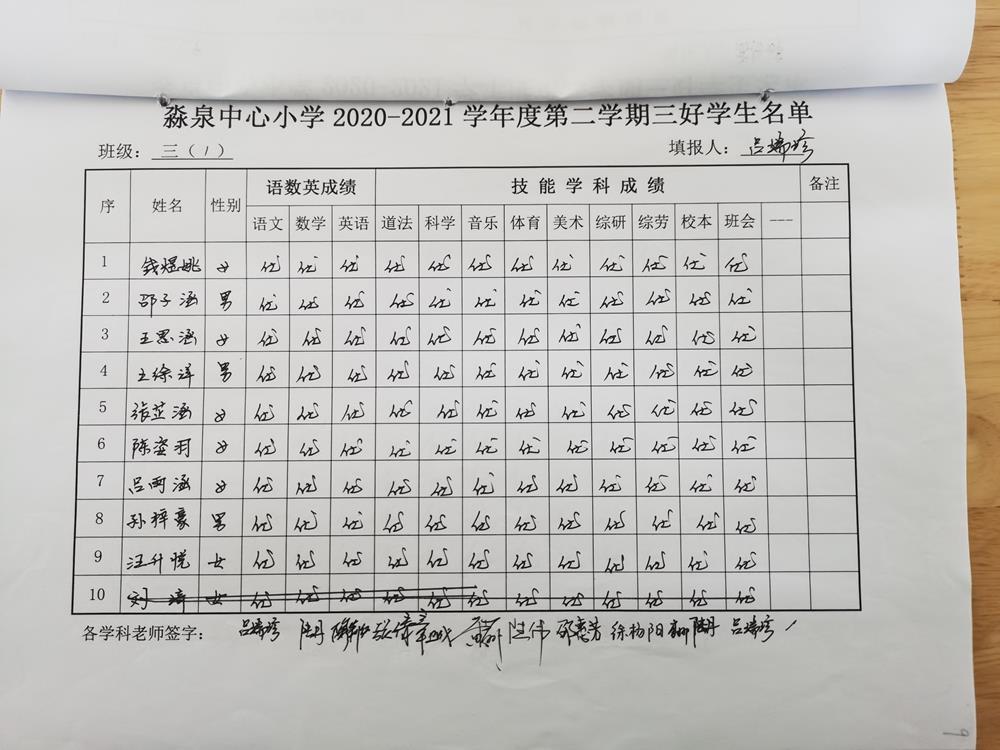 淼泉中心小学 2020-2021 学年度第二学期三好学生名单
班级： 三（1） 填报人： 吕瑞珍
序 姓名 性别 语数英成绩 技能学科成绩 备注
语文 数学 英语 道法 科学 音乐 体育 美术 综研 综劳 校本 班会 ---
1 钱煜姚 女 优 优 优 优 优 优 优 优 优 优 优 优
2 邵子涵 男 优 优 优 优 优 优 优 优 优 优 优 优
3 王思涵 女 优 优 优 优 优 优 优 优 优 优 优 优
4 王徐洋 男 优 优 优 优 优 优 优 优 优 优 优 优
5 张芷涵 女 优 优 优 优 优 优 优 优 优 优 优 优
6 陈奕羽 女 优 优 优 优 优 优 优 优 优 优 优 优
7 吕雨涵 女 优 优 优 优 优 优 优 优 优 优 优 优
8 孙梓豪 男 优 优 优 优 优 优 优 优 优 优 优 优
9 汪升悦 女 优 优 优 优 优 优 优 优 优 优 优 优
10 刘 女 优 优 优 优 优 优 优 优 优 优 优 优
各学科老师签字： 吕瑞珍 陆丹 陆伟 邵惠芳 徐杨阳 陆丹 吕瑞珍 /